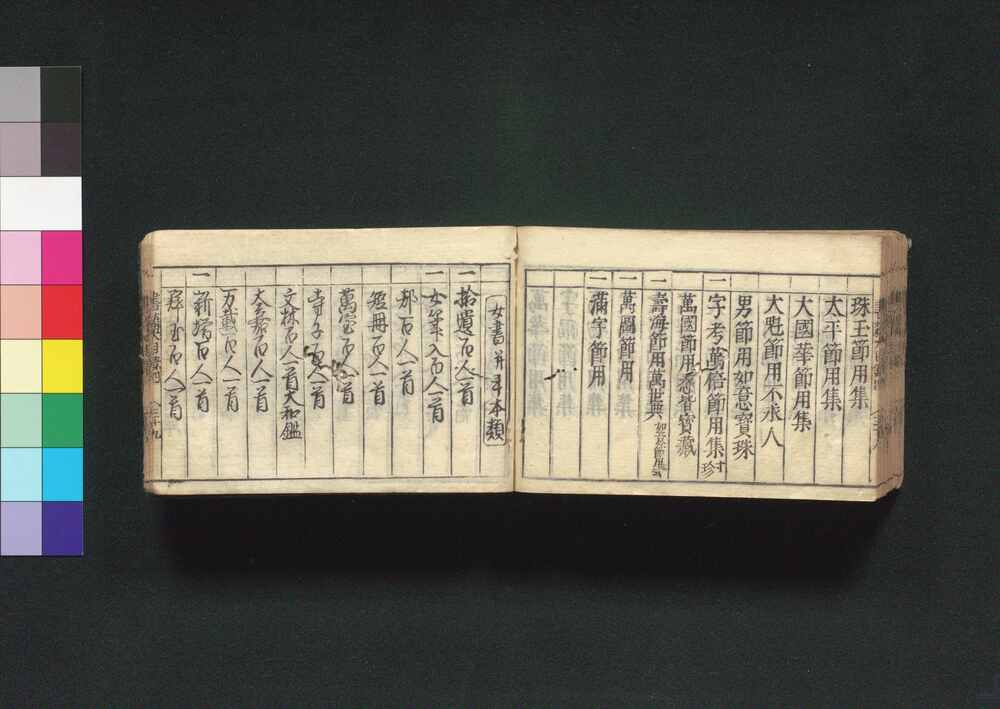 珠玉節用集
太平節用集
大國華節用集
大魁節用不求人
男節用如意寶珠
一 字考萬倍節用集 寸珍
萬國節用 寶藏
一 壽海節用萬世典
一 萬圖節用
一 満字節用
女書并手本類
一 拾遺百人一首
一 女年入百人一首
百人一首
百人一首
萬宝百人一首
寺子百人一首
文林百人一首大和鑑
百人一首
万載百人一首
一 新婦百人一首
百人一首